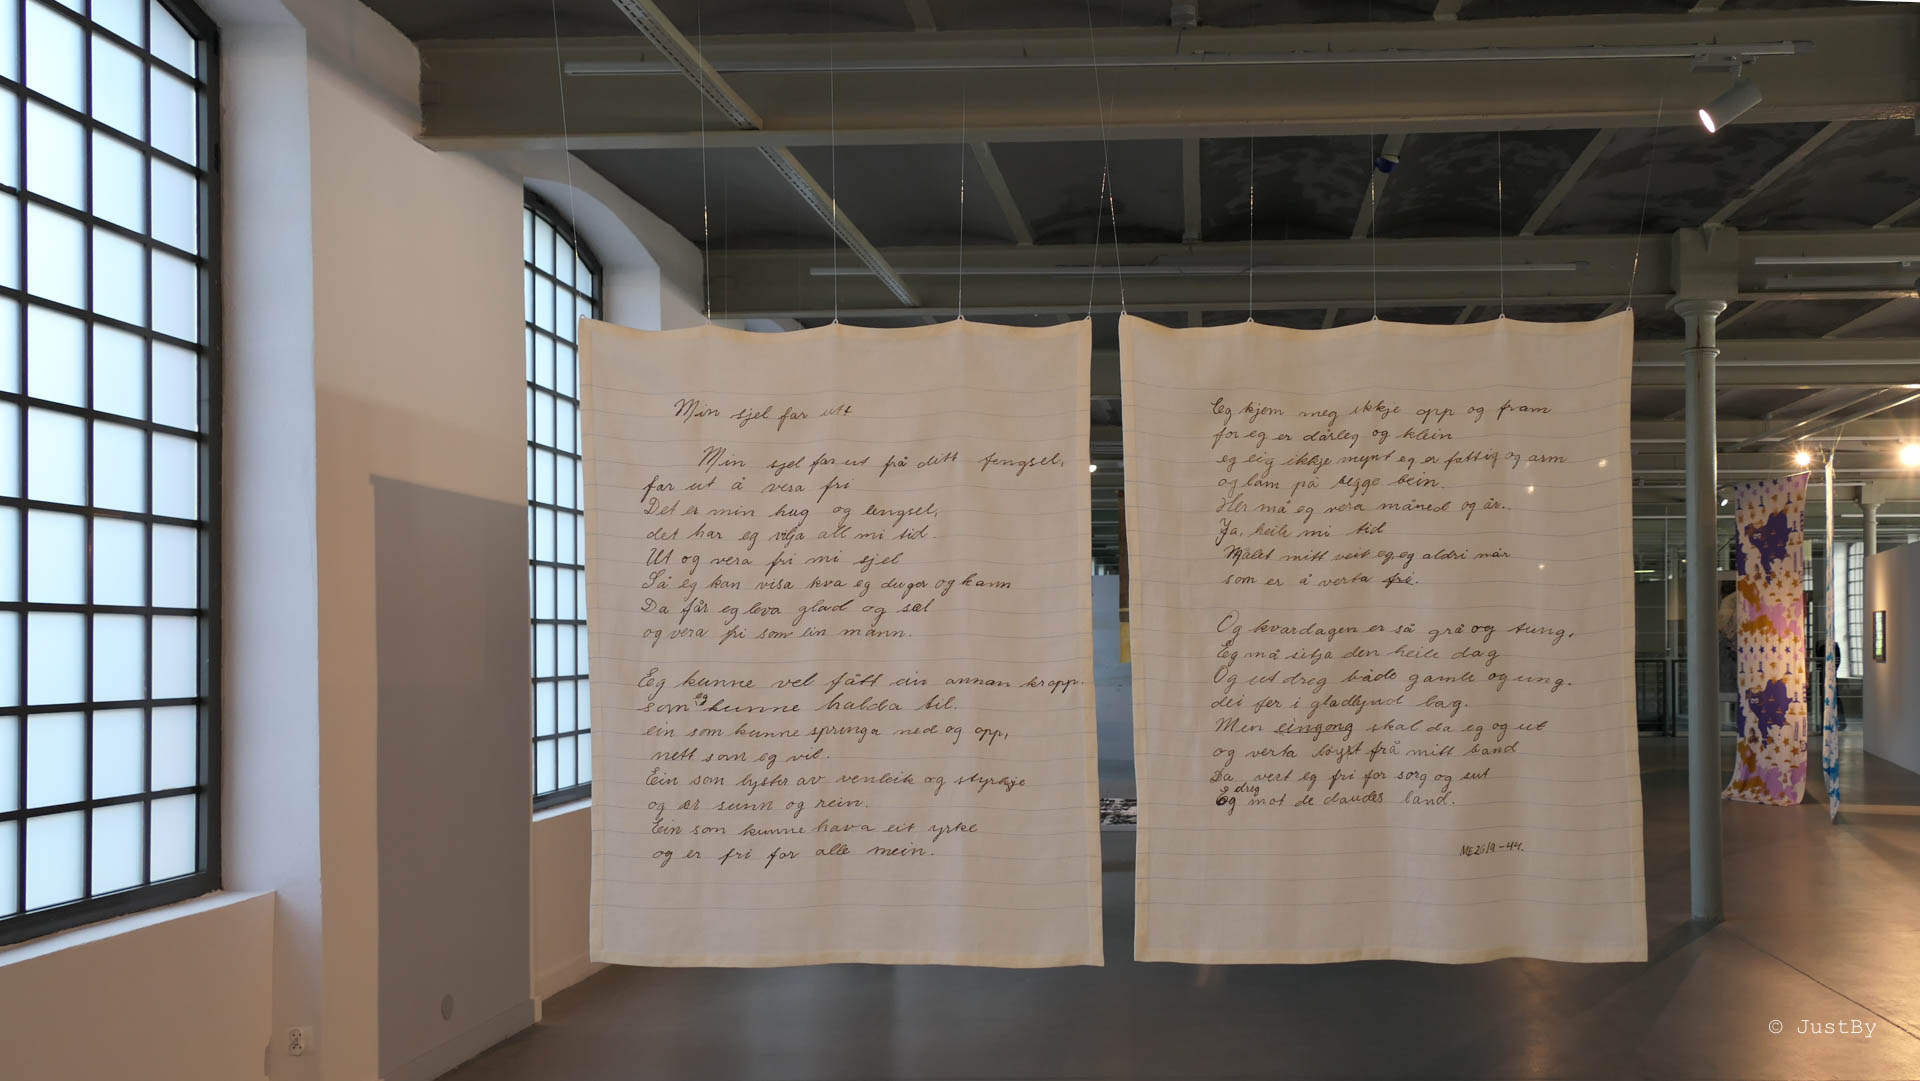 Min sjel far utt
Min sjel far ut frå ditt fengsel,
far ut å vera fri
Det er min hug og lengsel,
det har eg vilja all mi tid.
Ut og vera fri mi sjel
Så eg kan visa kva eg duger og kann
Da får eg leva glad og sæl
og vera fri som ein mann.
Eg kunne vel fått ein annan kropp.
som eg kunne halda til.
ein som kunne springa ned og opp,
nett som eg vil.
Ein som lyster av venleik og styrkje
og er sunn og rein.
Ein som kunne hava eit yrke
og er fri for alle mein.
Eg kjem meg ikkje opp og fram
for eg er dårleg og klein
eg eig ikkje mynt eg er fattig og arm
og lam på begge bein.
Her må eg vera måned og år.
Ja, heile mi tid
Målet mitt veit eg eg aldri når
som er å verta fri.
Og kvardagen er så grå og tung,
Eg må sitja den heile dag
Og ut dreg både gamle og ung.
dei fer i gladlynd lag.
Men eingong skal da eg og ut
og verta løyst frå mitt band
Da vert eg fri for sorg og sut
Og dreg mot de daudes land.
ME 26/9-44.
© JustBy